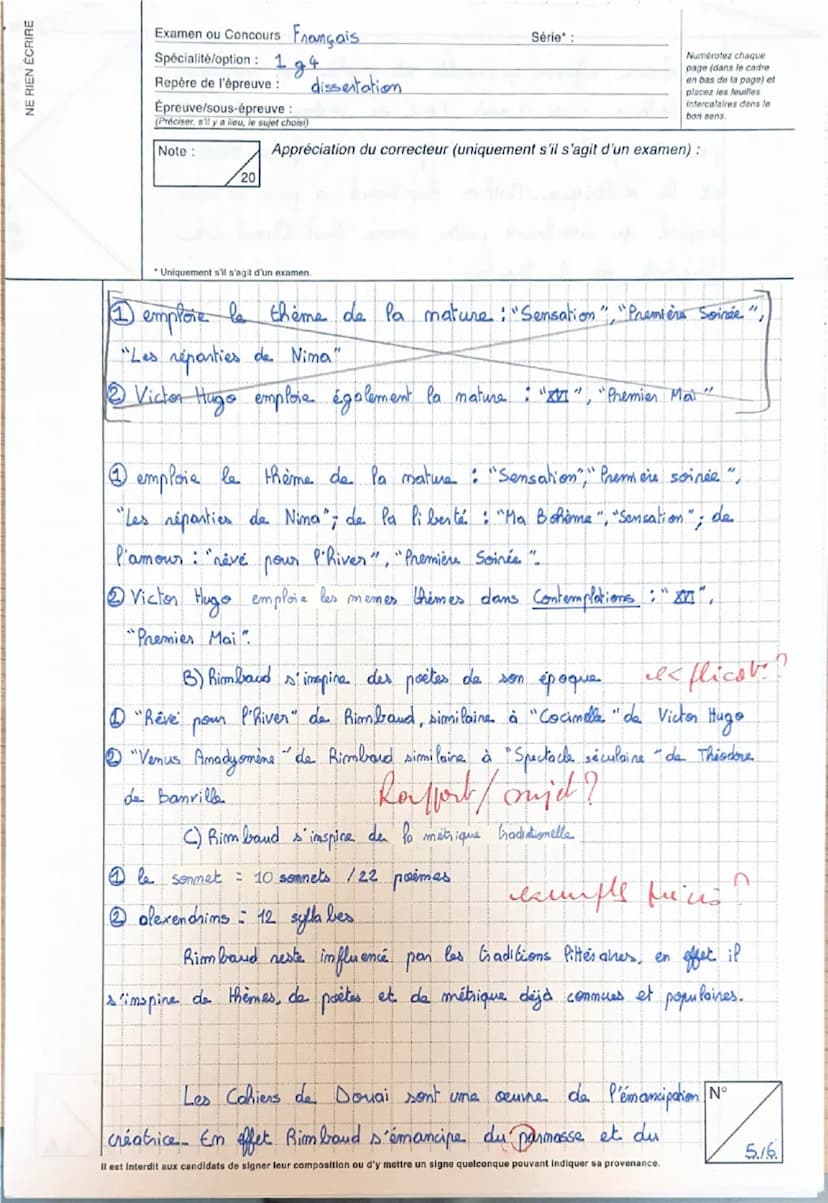 NE RIEN ÉCRIRE
Examen ou Concours Français Série* :
Spécialité/option : 1 g4
Repère de l'épreuve : dissertation
Épreuve/sous-épreuve :
(Préciser, s'il y a lieu, le sujet choisi)
Numérotez chaque
page (dans le cadre
en bas de la page) et
placez les feuilles
intercalaires dans le
bon sens.
Note : 20
Appréciation du correcteur (uniquement s'il s'agit d'un examen) :
* Uniquement s'il s'agit d'un examen.
① emploie le thème de la nature : "Sensation", "Première Soirée",
"Les réparties de Nina"
② Victor Hugo emploie également la nature : "XVI", "Premier Mai"
① emploie le thème de la nature : "Sensation", "Première soirée",
"Les réparties de Nina" ; de la liberté : "Ma Bohème", "Sensation" ; de
l'amour : "rêvé pour l'hiver", "Première Soirée".
② Victor Hugo emploie les memes thèmes dans Contemplations : "XVI",
"Premier Mai".
B) Rimbaud s'inspire des poètes de son époque explicat°?
① "Rêvé pour l'Hiver" de Rimbaud, similaire à "Coccinelle" de Victor Hugo
② "Venus Anadyomène" de Rimbaud similaire à "Spectacle séculaire" de Théodore
de Banville Rapport/sujet?
C) Rimbaud s'inspire de la métrique traditionelle
① le sonnet = 10 sonnets /22 poèmes
exemple précis?
② alexendrins = 12 syllabes
Rimbaud reste influencé par les traditions littéraires, en effet il
s'inspire de thèmes, de poètes et de métrique déjà connues et populaires.
Les Cahiers de Douai sont une œuvre de l'émancipation
créatrice. En effet Rimbaud s'émancipe du parnasse et du
N°
5/6
Il est interdit aux candidats de signer leur composition ou d'y mettre un signe quelconque pouvant indiquer sa provenance.